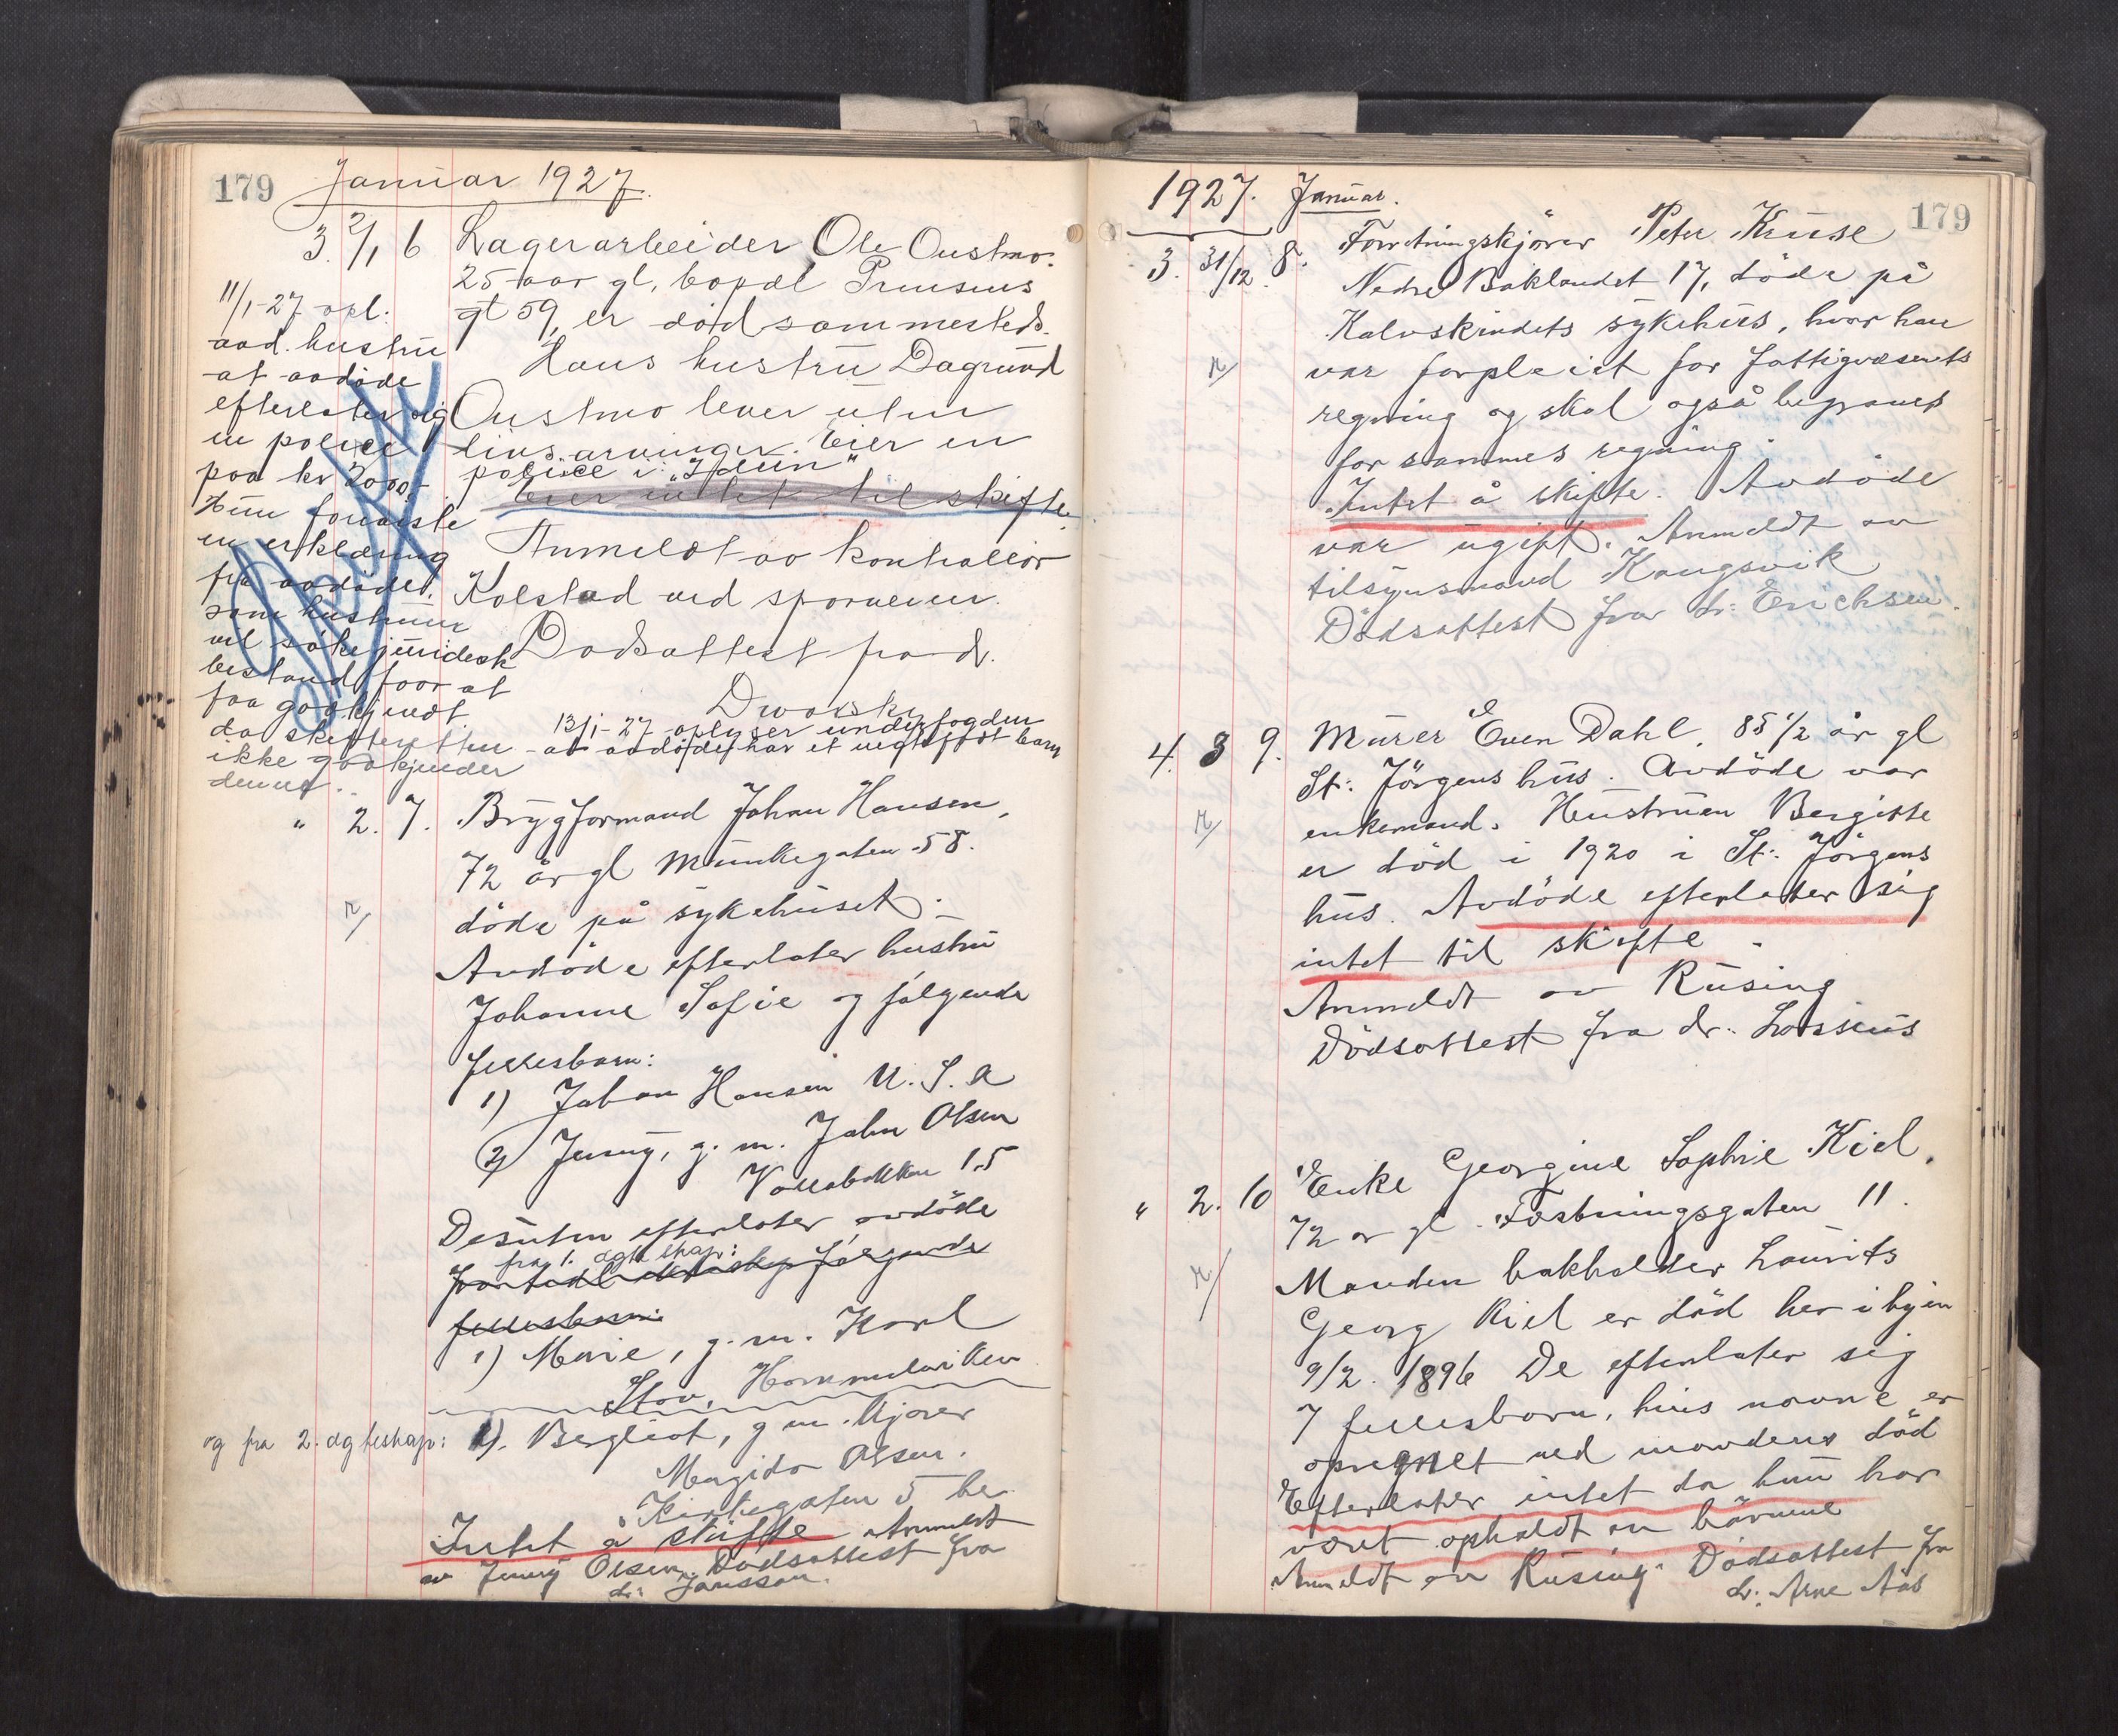 179
Januar 1927.
3. 2/1 6 Lagerarbeider Ole Oustmo.
25 aar gl, bopæl Prinsens
gt 59, er död sammesteds.
Hans hustru Dagrund
Oustmo lever uten
livsarvinger. Eier en
police i "Idun"
Eier intet til skifte.
Anmeldt av kontrollör
Kolstad ved sporveien.
Dødsattest fra dr.
Dworsky
13/1-27 oplyser underfogden
at avdöde har et uegte födt barn
11/1-27 opl.
avd. hustru
at avdöde
efterlater sig
en police
paa kr 2000,-
Hun foreviste
en erklæring
fra avdöde,
som hustruen
vil söke juridisk
bistand foor at
faa godkjendt
da skifteretten
ikke godkjender
denne.
" 2. 7. Bryggformand Johan Hansen,
72 år gl Munkegaten 58.
döde på sykehuset.
Avdöde efterlater hustru
Johanne Sofie og fölgende
fellesbarn:
1) Johan Hansen U.S.A
2) Jenny, g. m. John Olsen
Vollabakken 15
Desuten efterlater avdöde
fra 1. egteskap:
følgende
fellesbarn:
1) Marie, g. m. Karl
Stav, Hommelviken
og fra 2. egteskap: 1). Bergliot, g m. kjörer
Olsen.
Kirkegaten 5 her
Intet å skifte Anmeldt
av Jenny Olsen. Dödsattest fra
dr: Jansson.
179
1927. Januar.
3. 31/12 8. Forretningskjörer Peter Kruse
Nedre Baklandet 17, döde på
Kalvskindets sykehus, hvor han
var forpleiet for fattigvæsenets
regning og skal også begraves
for sammes regning.
Intet å skifte. Avdöde
var ugift. Anmeldt av
tilsynsmand Kongsvik
Dödsattest fra dr: Erichsen.
4. 3 9. Murer Even Dahl, 85 1/2 år gl
St: Jörgens hus. Avdöde var
enkemand. Hustruen Bergitte
er död i 1920 i St: Jörgens
hus. Avdöde efterlater sig
intet til skifte.
Anmeldt av Rusing
Dödsattest fra dr: Lossius
" 2. 10 Enke Georgine Sophie Kiel.
72 år gl. Festningsgaten 11.
Manden bokholder Laurits
Georg Kiel er död her i byen
9/2. 1896 De efterlater sig
7 fellesbarn, hvis navne er
opregnet ved mandens död
Efterlater intet da hun har
vært opholdt av barnene
Anmeldt av Rusing. Dödsattest fra
dr: Arne Aas